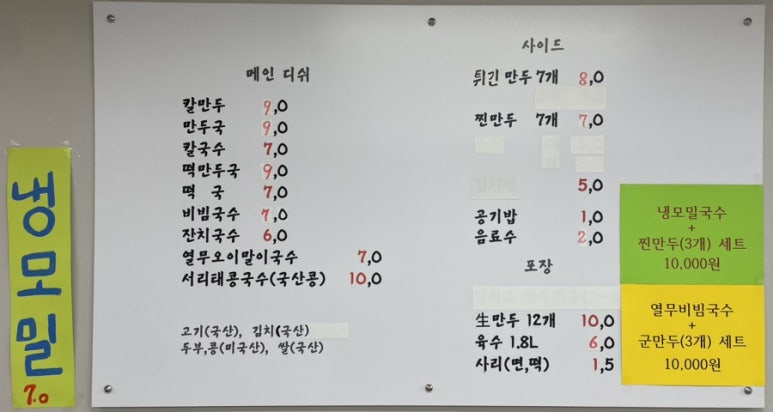 냉모밀
7.0
메인 디쉬
칼만두 9,0
만두국 9,0
칼국수 7,0
떡만두국 9,0
떡 국 7,0
비빔국수 7,0
잔치국수 6,0
열무오이말이국수 7,0
서리태콩국수(국산콩) 10,0
고기(국산), 김치(국산)
두부,콩(미국산), 쌀(국산)
사이드
튀긴 만두 7개 8,0
찐만두 7개 7,0
5,0
공기밥 1,0
음료수 2,0
포장
生만두 12개 10,0
육수 1.8L 6,0
사리(면,떡) 1,5
냉모밀국수
+
찐만두(3개) 세트
10,000원
열무비빔국수
+
군만두(3개) 세트
10,000원